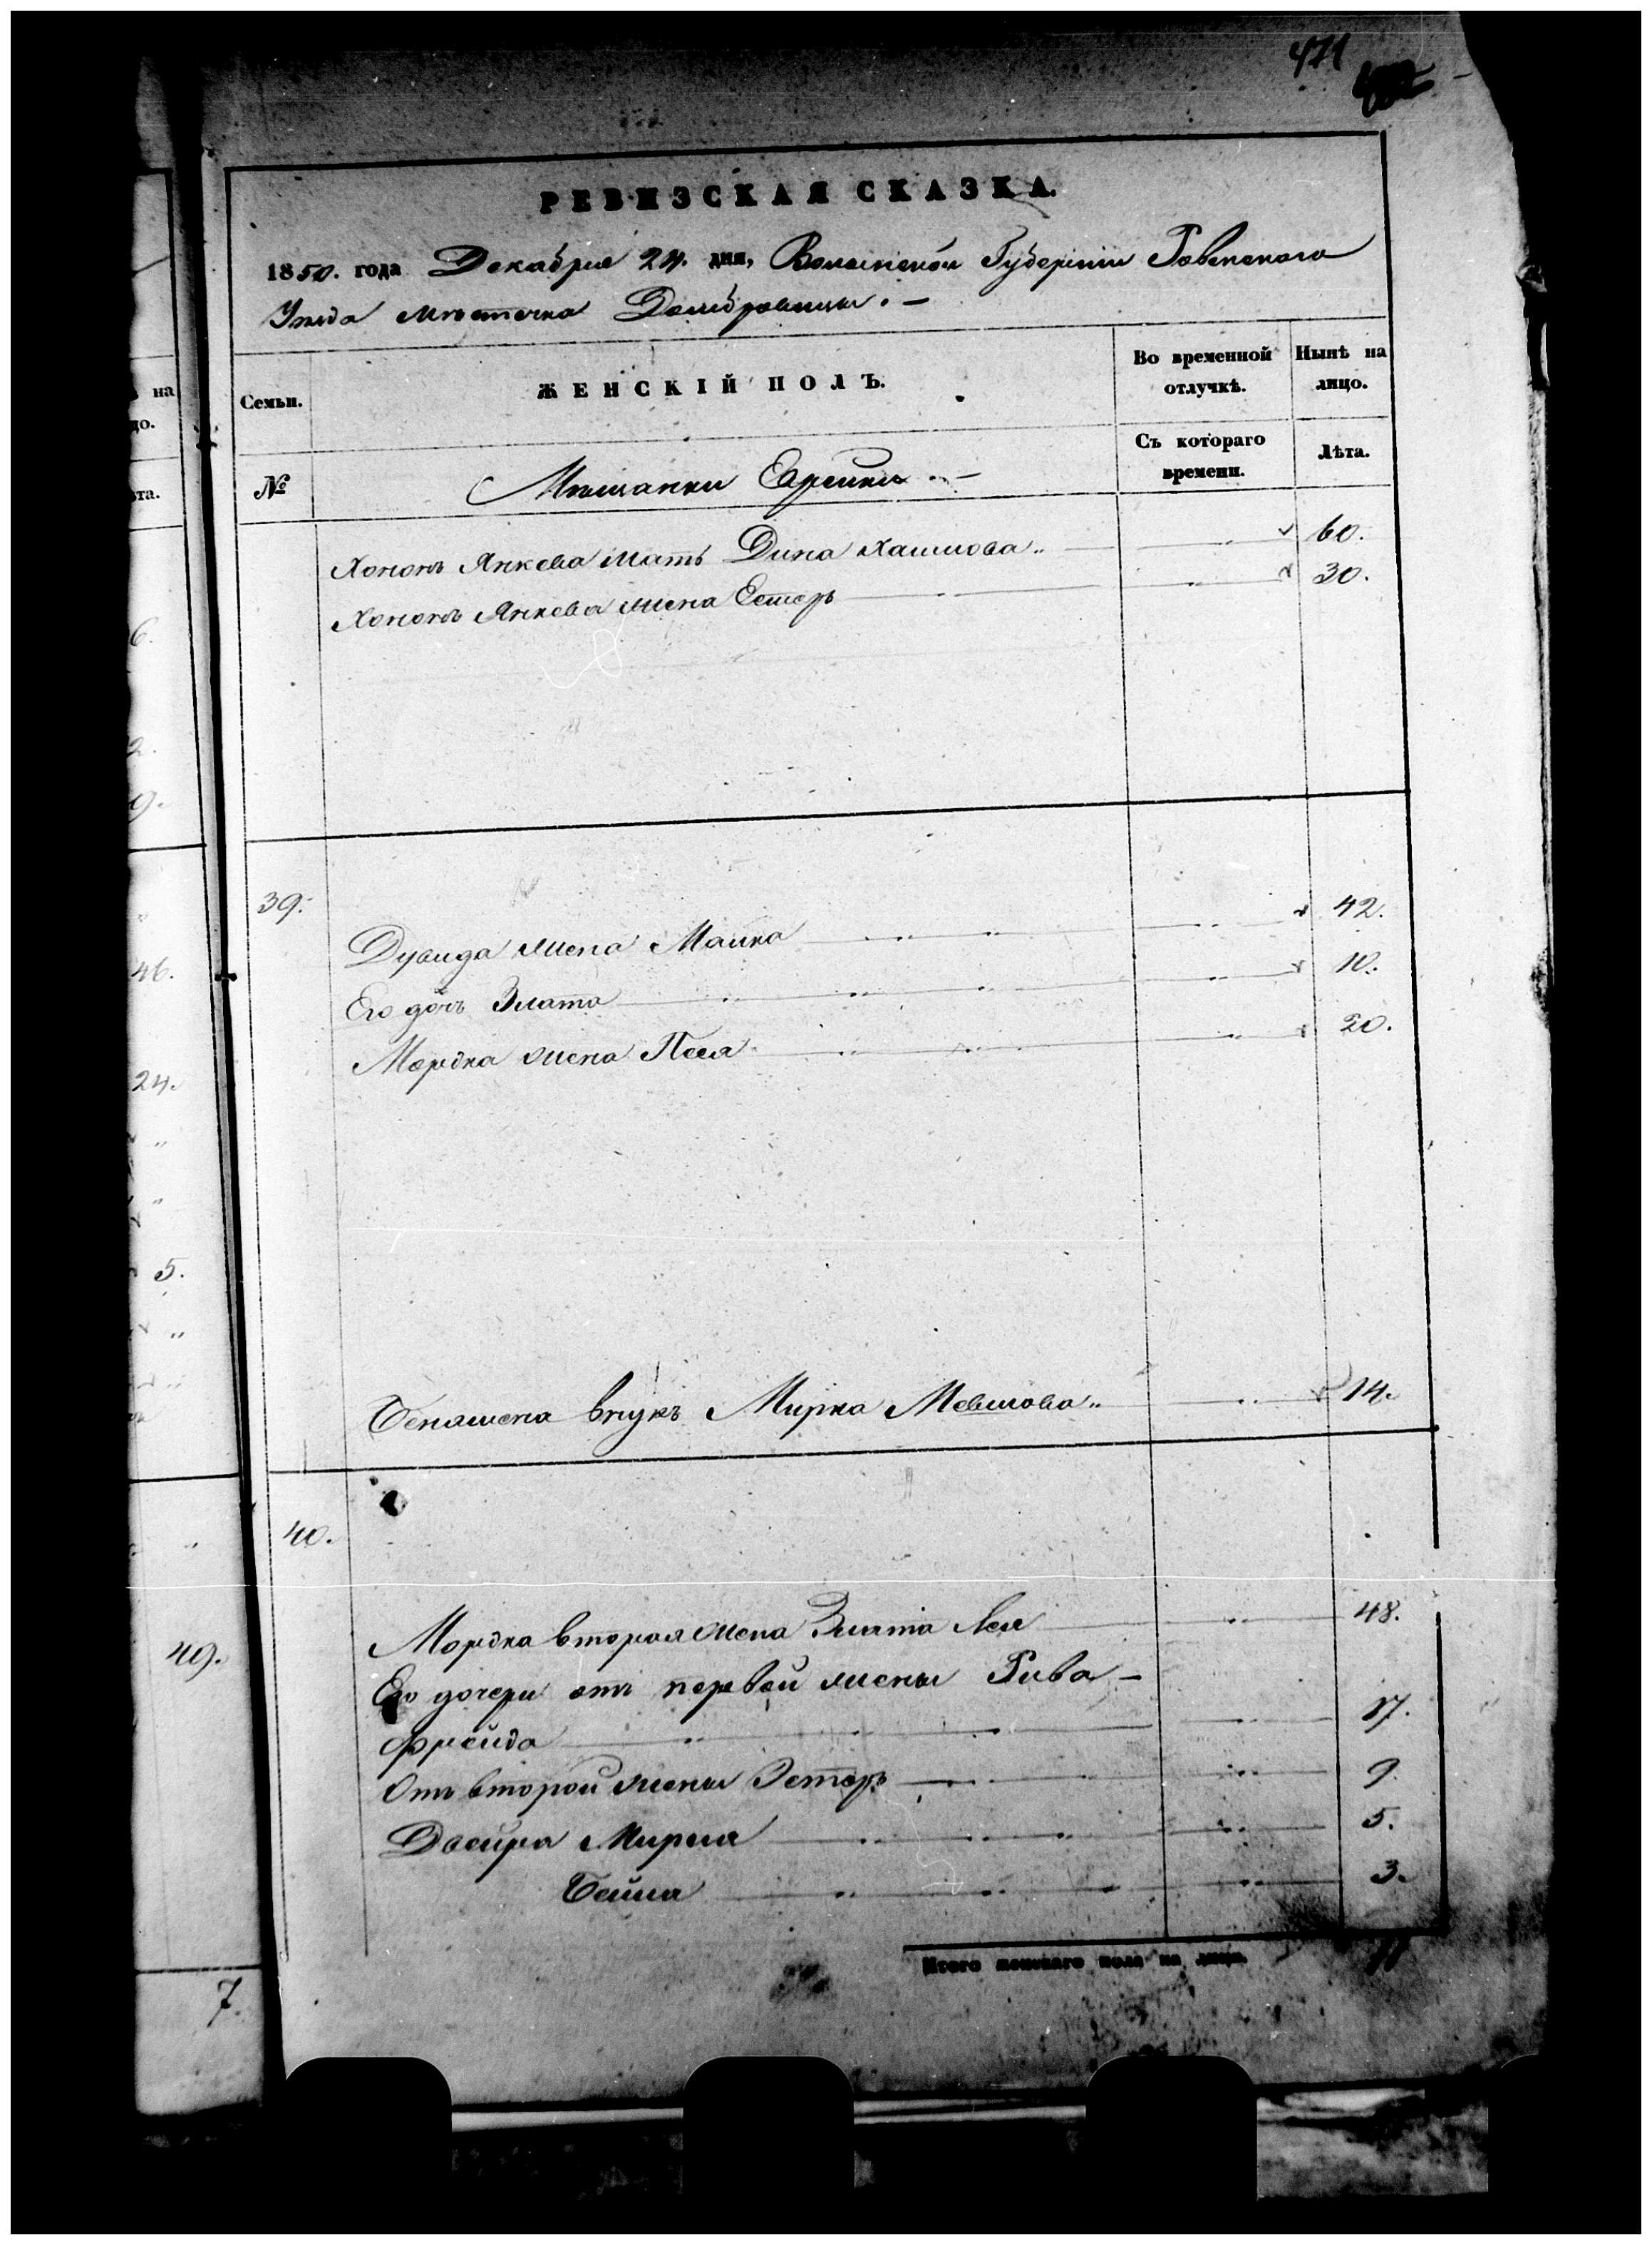 471
РЕВИЗСКАЯ СКАЗКА.
1850. года Декабря 24. дня, Волынской Губернiи Ровенского
Уѣзда мѣстечка Домбровицы. –
на
Семьи.
ЖЕНСКIЙ ПОЛЪ.
Во временной отлучкѣ.
Нынѣ на лицо.
№
Мѣщанки Еврейки. –
Съ котораго времени.
Лѣта.
Хононъ Янкева мать Дина Хаимова 60.
Хононъ Янкева жена Естеръ 30.
39.
Дувида жена Малка 42.
Его дочь Злата 10.
Мордка жена Песя 20.
внукъ Мирка 14.
40.
Мордка вторая жена Злата Лея 48.
Его дочери отъ первой жены Рива –
Фрейда 17.
Отъ второй жены Эстеръ 9.
Двейра Мирля 5.
Бейла 3.
Итого женскаго пола на лицо. 11
46.
24.
5.
49.
7.